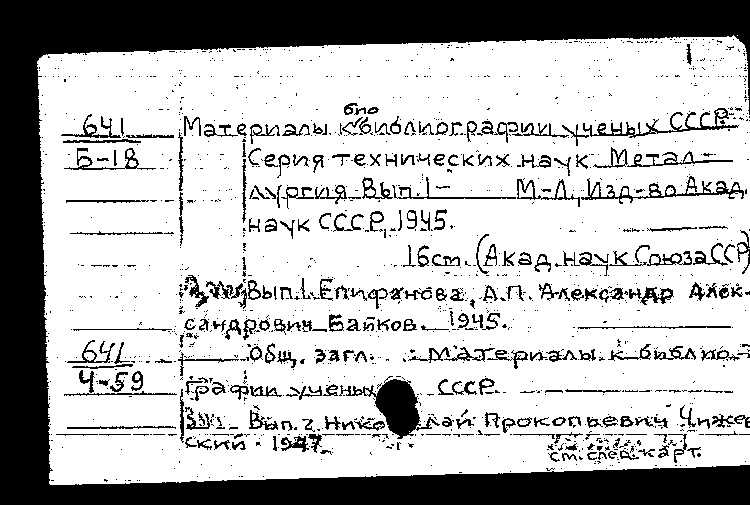 био
641 Материалы к библиографии ученых СССР.
Б-18 Серия технических наук. Метал-
лургия Вып. 1- М-Л., Изд-во Акад.
наук СССР, 1945.
16 ст. (Акад. наук Союза ССР)
Вып. 1. Епифанова, А.П. Александр Алек-
сандрович Байков. 1945.
641 Общ. загл.: Материалы к библио-
Ч-59 графии ученых СССР.
Вып. 2. Николай Прокопьевич Чижев
ский. 1947.
см. спец. карт.